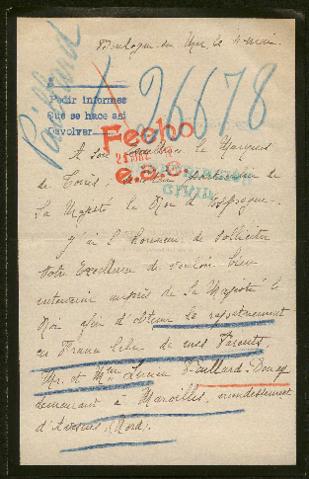 Boulogne sur Mer le
Paillard
26678
Pedir informes
Que se hace así
Devolver
Fecho
A son Excellence le Marquis
de Torrès, Secrétaire particulier de
Sa Majesté le Roi d'Espagne.
J'ai l'honneur de solliciter
Votre Excellence de vouloir bien
intervenir auprès de Sa Majesté le
Roi afin d'obtenir le rapatriement
en France libre de mes Parents,
Mr. et Mme Lucien Paillard
demeurant à Maroilles, arrondissement
d'Avesnes (Nord).